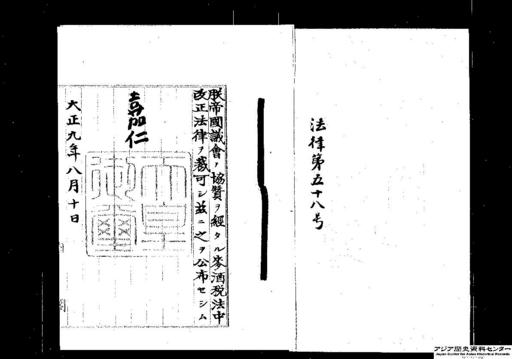 法律第五十八号
朕帝國議會ノ協賛ヲ經タル麥酒税法中
改正法律ヲ裁可シ茲ニ之ヲ公布セシム
嘉仁
天皇御璽
大正九年八月十日
アジア歴史資料センター
Japan Center for Asian Historical Records